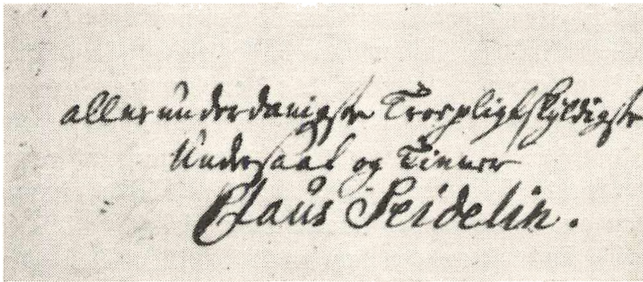 allerunderdanigste Troepligtskyldigste
Undersaat og Tienner
Claus Seidelin.